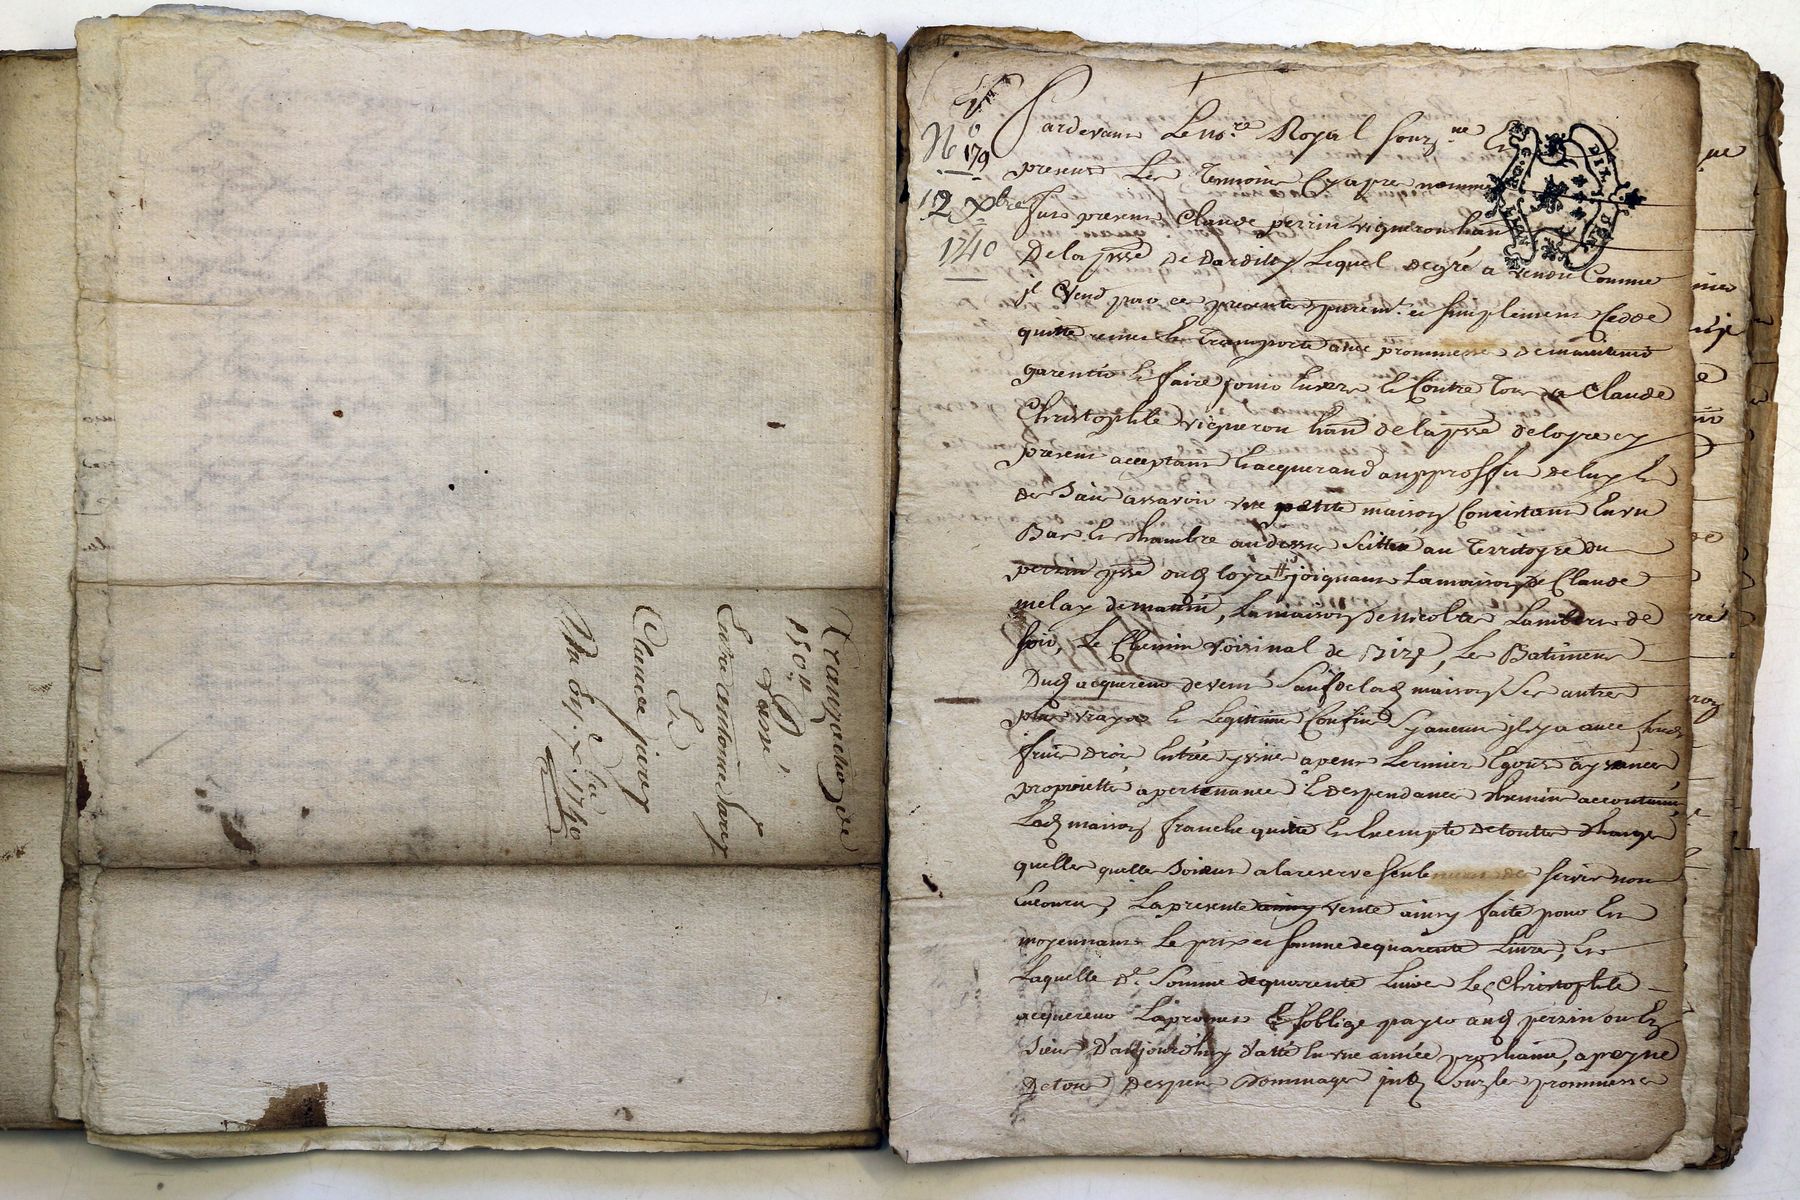 Tranzaction de
150ᵗᵗ Par
Entre antoine Savey
Et
Claude pierry
Du 6ᵉ xbre 1740
N° 179
12 xbre
1740
Pardevant Le no.re Royal souz.né Et
present Les Temoins Cy apres nommé
fut present Claude perrin vigneron hāñ
De la psse de Dardilly Lequel degré a vendu Comme
jl Vend par ces presentes purem.t et simplement Cedde
quitte remet Et Transporte avec prommesse de maintenir
garentir Et faire jouir Envers Et Contre Tous a Claude
Christophle vigneron hāñ de la psse de loyre cy
present acceptant Et acquerand au proffit de luy Et
des Siens assavoir une petitte maison Concistant En un
Bas Et Chambre au dessus Scittué au Territoyre du
perrin psse dud loyre joignant La maison de Claude
melay de matin, La maison de nicolas Lambert de
soir, Le Chemin voisinal de Bize, Les Batiments
Dud acquereur de vent Sauf de lad maison Ses autres
plus vrays Et Legitimes Confins Sy aucuns jl y a avec fonds
fruit droit Entrées yssües apens Larmier Egout aysances
proprietté apartenances Et despendances Chemin accoutumé
Lad maison franche quitte Et Exempte de toutte Charges
quelles quelles Soient a la reserve seulement des servis non
Encouru, La presente ainsy vente ainsy faite pour Et
moyennant Le prix et somme de quarente Livres, Et
Laquelle d.e Somme de quarente Livres Led Christophle
acquereur La promet Et soblige payer aud perrin ou Es
Siens D'aujourdhuy datte En une année prochaine, a peyne
De tous Despens Dommages jnts Souz les prommesses